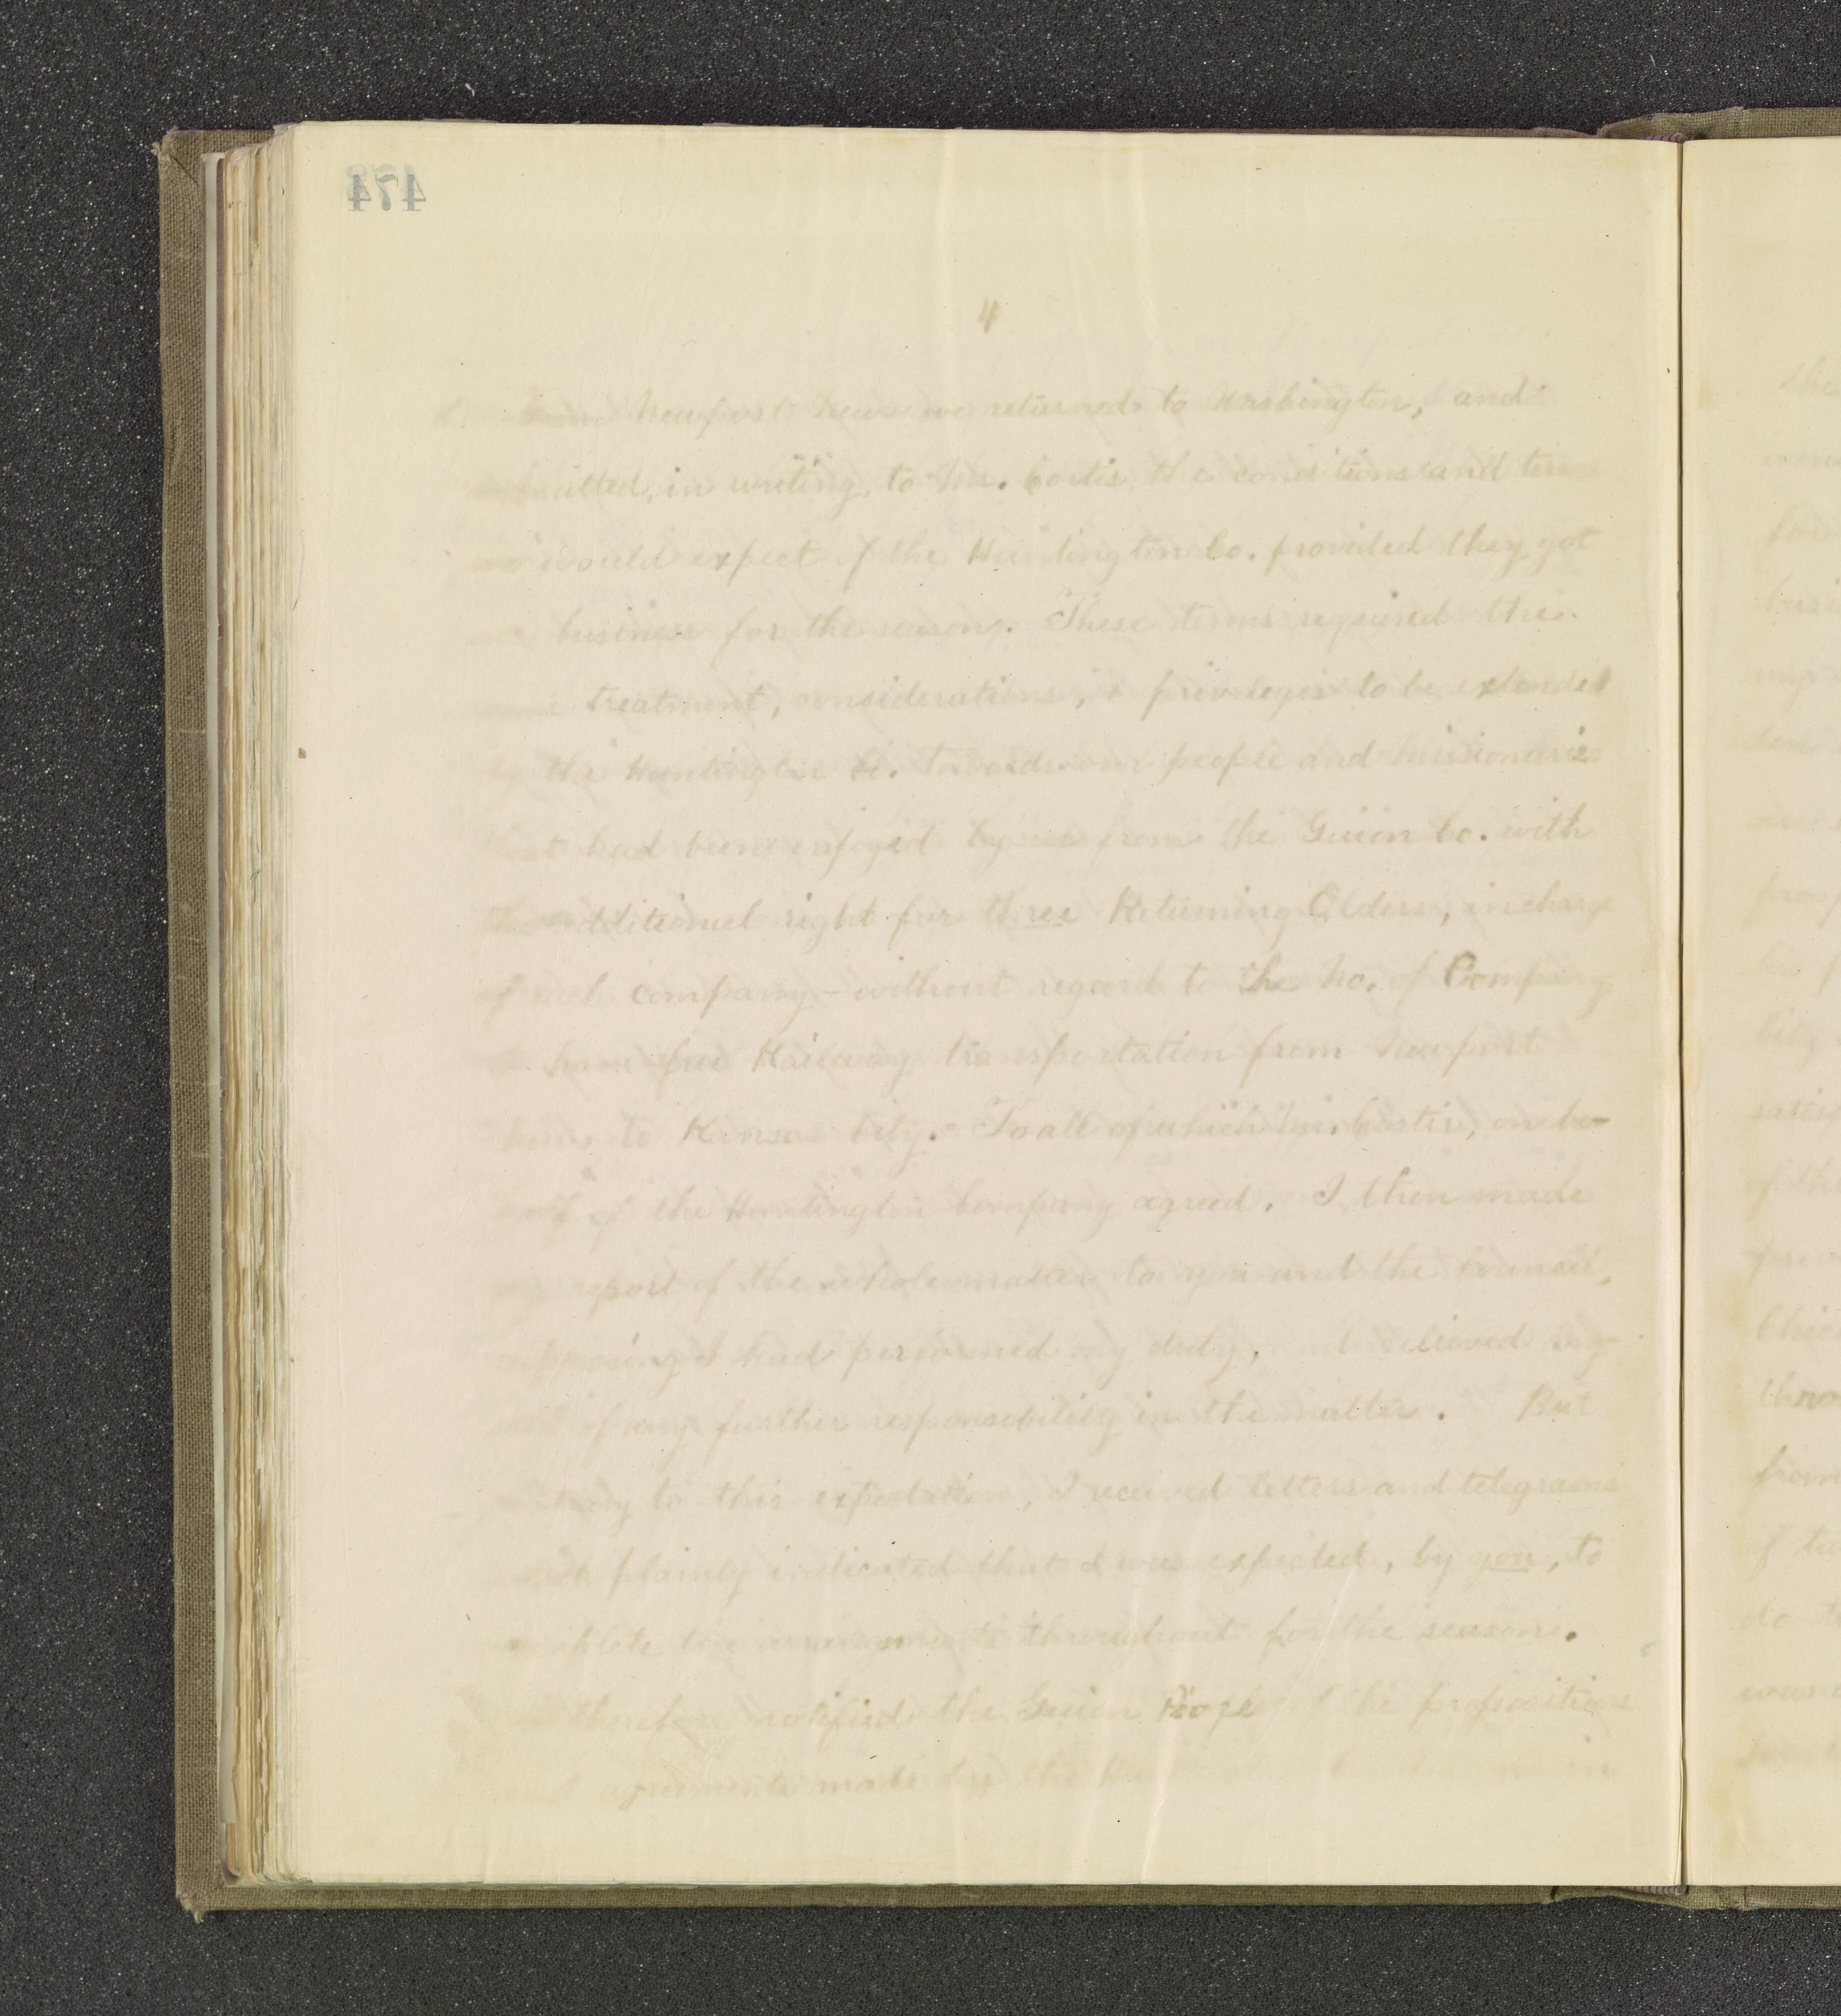 474
4
From Newport News we returned to Washington, and
submitted, in writing, to Mr. Cortis, the conditions and terms
we would expect of the Huntington Co. provided they got
our business for the season. These terms required the
same treatment, considerations, & privileges to be extended
by the Huntington Co. towards our people and Missionaries
that had been enjoyed by us from the Guion Co. with
the additional right for three Returning Elders, in charge
of each company - without regard to the No. of Company
to have free Railway transportation from Newport
News to Kansas City. To all of which Mr. Cortis, on be-
half of the Huntington Company agreed. I then made
my report of the whole matter to you and the Council,
supposing I had performed my duty, and relieved my-
self of any further responsibility in the matter. But
contrary to this expectation, I received letters and telegrams
which plainly indicated that I was expected, by you, to
complete the arrangements throughout for the season.
I therefore notified the Guion People of the propositions
and agreements made by the
the
for
my
of the
from
of
do